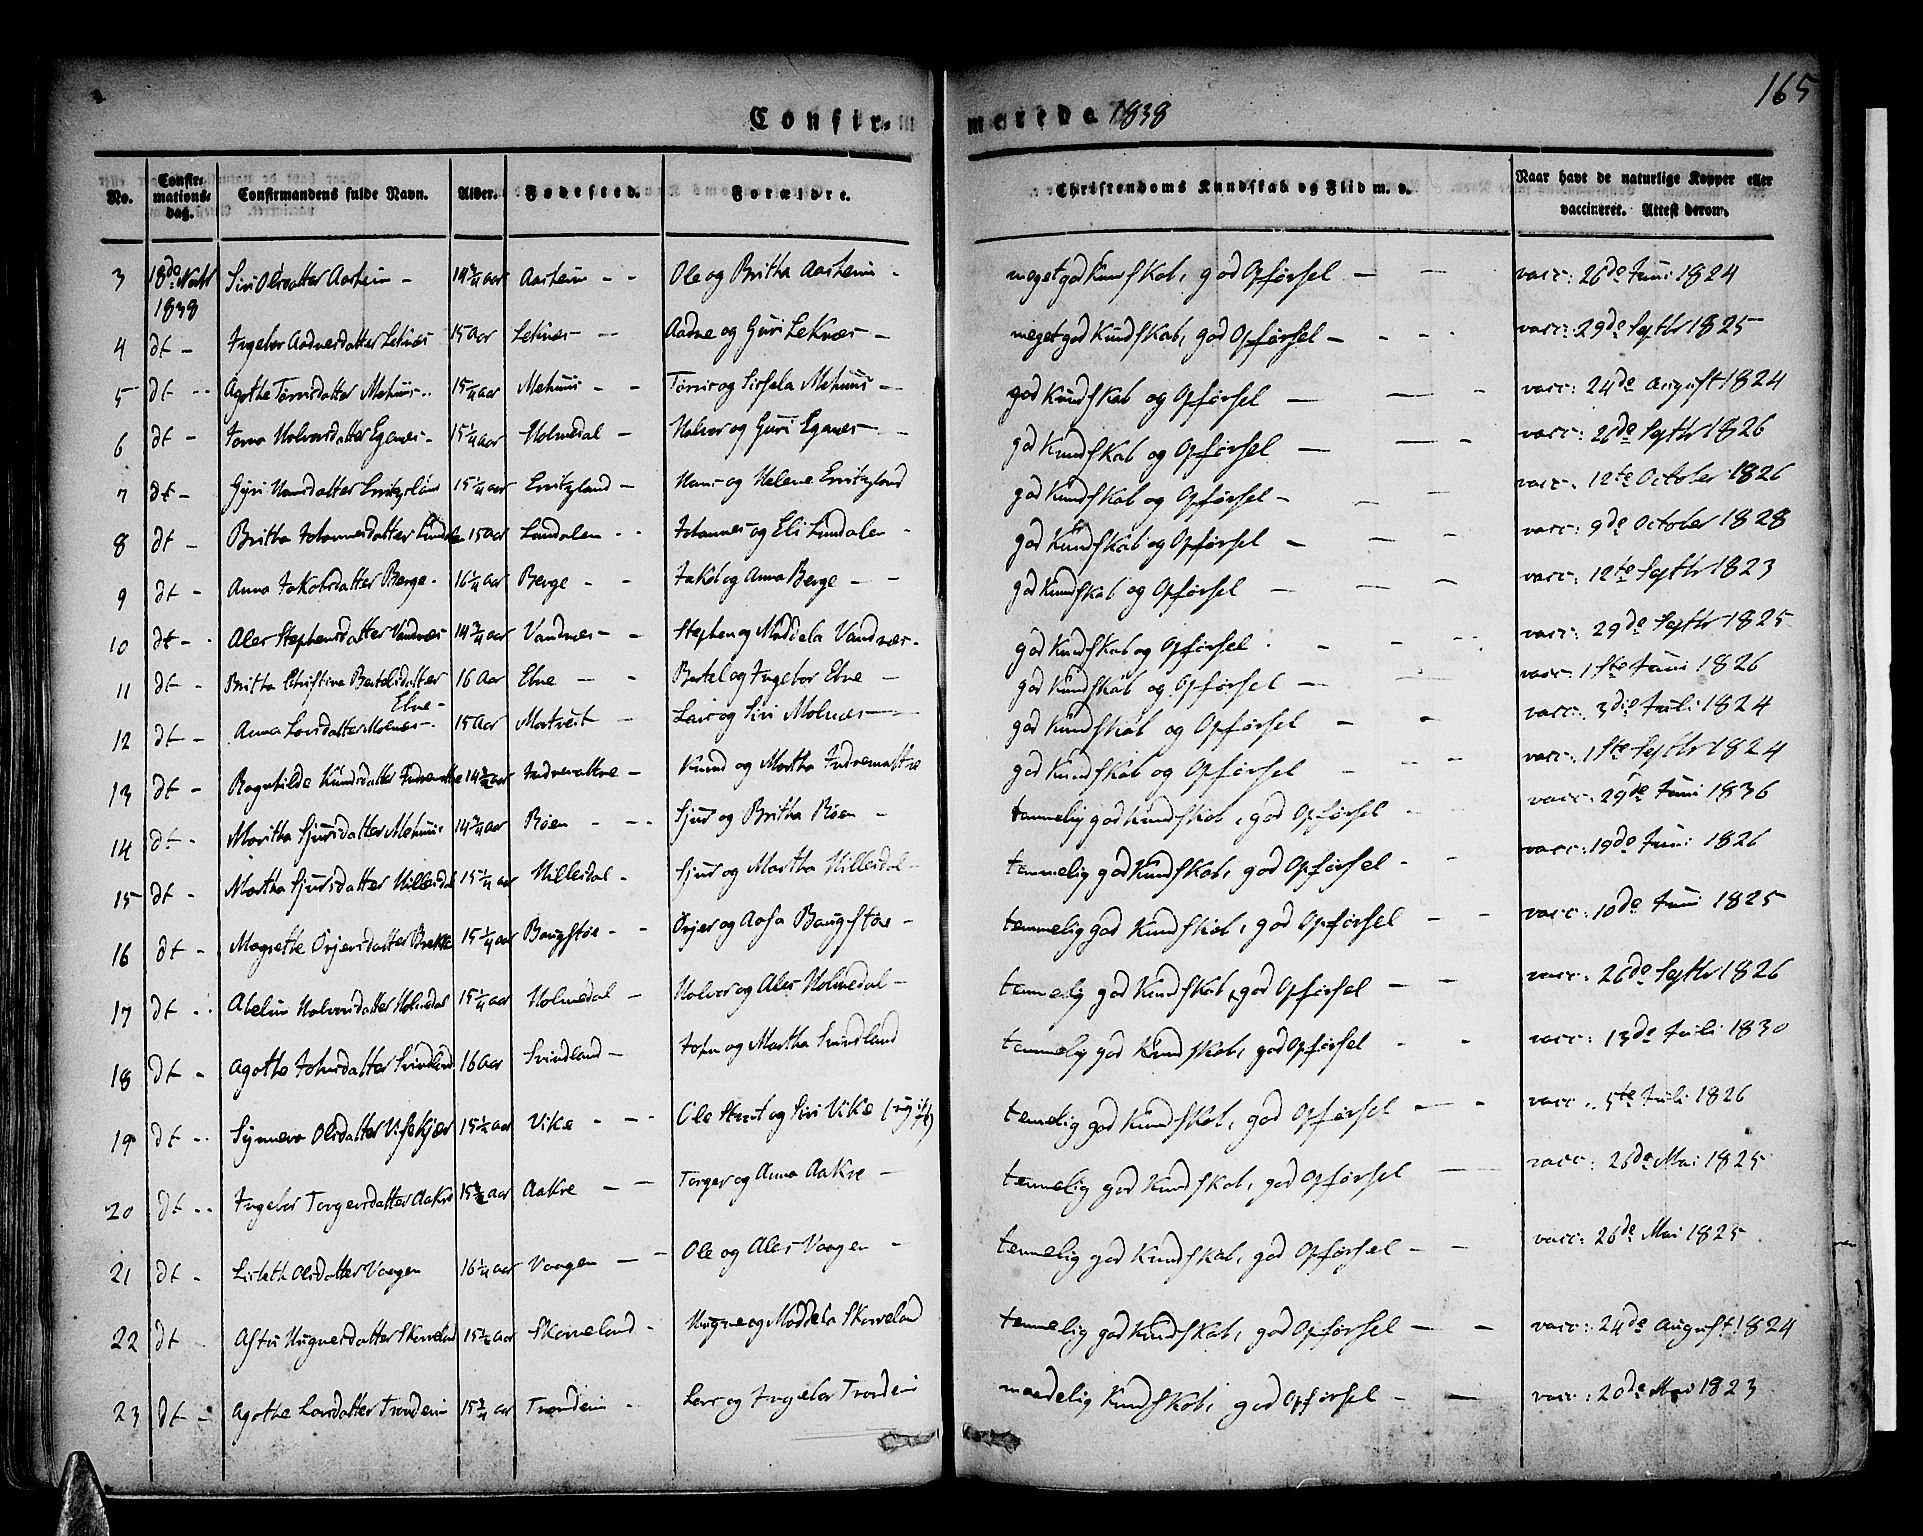 165
Confir- merede 1838
No. Confir-mations-dag. Confirmandens fulde Navn. Alder. Fødested. Forældre. Christendoms Kundskab og Flid m. v. Naar havt de naturlige Kopper eller vaccineret. Attest derom.
3 18de 1838 Siri Olsdatter Aarhein - 14 3/4 aar Aarhein - - Ole og Britha Aarhein - meget god Kundskab, god Opførsel - - vacc: 26de Juni 1824
4 dt - Ingebor Aadnesdatter Leknæs 15 aar Leknæs - - Aadne og Guri Leknæs - meget god Kundskab, god Opførsel - - - vacc: 29de Septbr 1825
5 dt - - Agathe Mehuus - 15 1/4 aar Mehuus - - og Mehuus - god Kundskab og Opførsel - - - vacc: 24de August 1824
6 dt - Halvorsdatter Egenes - 15 1/4 aar Holmedal - Halvor og Guri Egenes - god Kundskab og Opførsel - - - vacc: 26de Septbr 1826
7 dt - Hansdatter 15 1/4 aar - Hans og Helene god Kundskab og Opførsel - - - vacc: 12te October 1826
8 dt - Britha Johannesdatter 15 aar - - Johannes og Eli Lundalen - god Kundskab og Opførsel - - - vacc: 9de October 1828
9 dt - Anna Jakobsdatter Berge - 16 1/4 aar Berge - - Jakob og Anna Berge - - god Kundskab og Opførsel - - - vacc: 12te Septbr 1823
10 dt - Ales Stephensdatter Vandnæs 14 3/4 aar Vandnæs - - Stephen og Maddela Vandnæs - god Kundskab og Opførsel - - vacc: 29de Septbr 1825
11 dt - Britha Christine Bertelsdatter Ebne - 16 aar Ebne - - Bertel og Ingebor Ebne - god Kundskab og Opførsel - - vacc: 1ste Juni 1826
12 dt - Anna Larsdatter - 15 aar Martveit - Lars og Siri Molnæs - god Kundskab og Opførsel - - vacc: 3die Juli 1824
13 dt - Ragnhilde Knudsdatter 14 3/4 aar - Knud og Martha god Kundskab og Opførsel - - - vacc: 1ste Septbr 1824
14 dt - Maritha Sjursdatter Mehuus 14 3/4 aar Røen - - Sjur og Britha Røen - temmelig god Kundskab, god Opførsel - vacc: 29de Juni 1836
15 dt - Martha Sjursdatter Hillesdal 15 1/4 aar Hillesdal - Sjur og Martha Hillesdal - temmelig god Kundskab, god Opførsel - - vacc: 19de Juni 1826
16 dt - Magrethe Brekke 15 1/4 aar Baugstøe - - og Aasa Baugstøe - temmelig god Kundskab, god Opførsel - - vacc: 10de Juni 1825
17 dt - - Abelin Halvorsdatter Holmedal 15 1/4 aar Holmedal - Halvor og Ales Holmedal - temmelig god Kundskab, god Opførsel - - vacc: 26de Septbr 1826
18 dt - Agathe Johnsdatter Svindland 16 aar Svindland - John og Martha Svindland temmelig god Kundskab, god Opførsel - - vacc: 13de Juli 1830
19 dt - - Synneva Olsdatter 15 1/2 aar Vike - - Ole og Siri Vike temmelig god Kundskab, god Opførsel - - vacc: 5te Juli 1826
20 dt - - Ingebor Torgersdatter Aakre 15 1/2 aar Aakre - - Torger og Anna Aakre - temmelig god Kundskab, god Opførsel - vacc: 26de Mai 1825
21 dt - Lisbeth Olsdatter Vaagen 16 1/4 aar Vaagen - - Ole og Ales Vaagen - temmelig god Kundskab, god Opførsel - - vacc: 26de Mai 1825
22 dt 15 1/2 aar Skorveland - og Maddela Skorveland temmelig god Kundskab, god Opførsel - - vacc: 24de August 1824
23 dt - Agathe Larsdatter 15 3/4 aar - Lars og Ingebor maadelig Kundskab, god Opførsel - - vacc: 20de Mai 1823